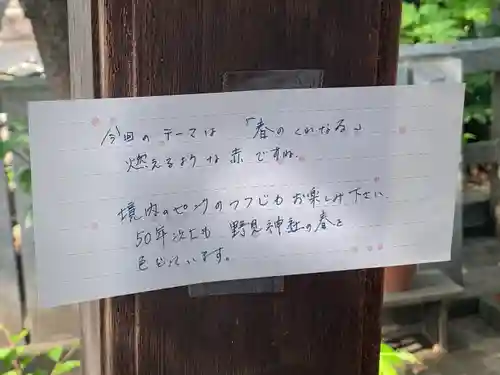 今回のテーマは 「春のくれなゐ」
燃えるような赤ですね。
境内のピンクのツツジもお楽しみ下さい
50年以上も 野見神社の春を
色どっています。